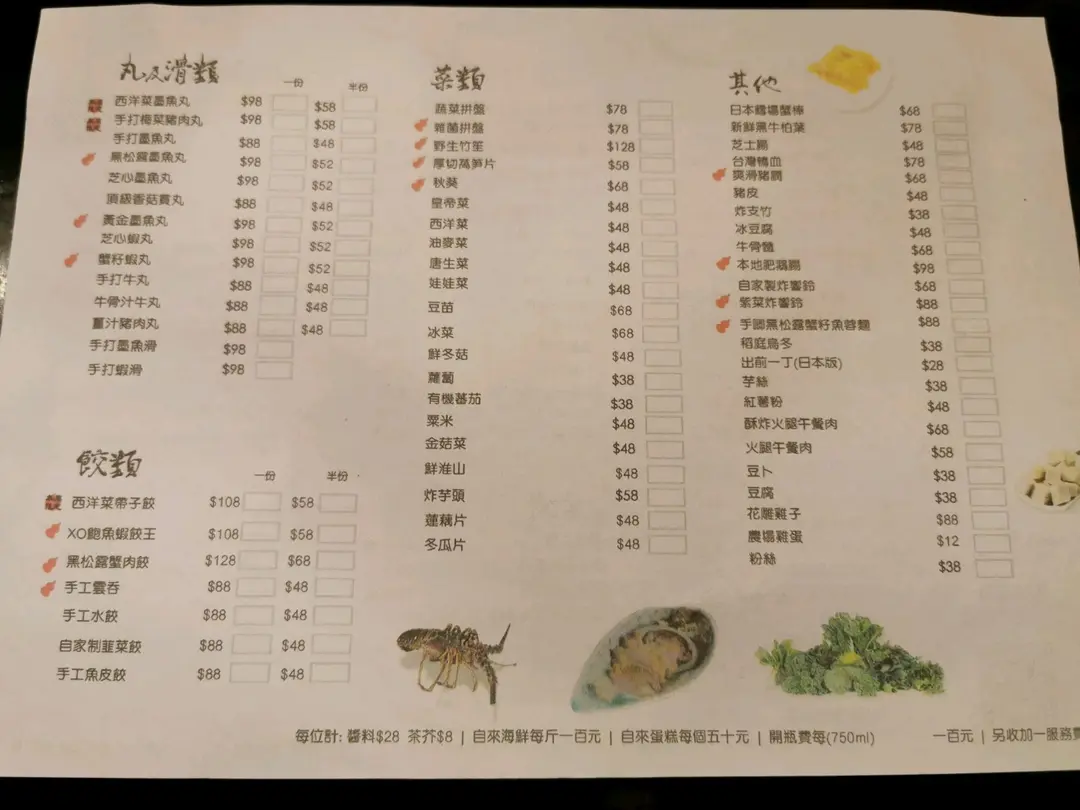 丸及滑類 一份 半份
西洋菜墨魚丸 $98 $58
手打梅菜豬肉丸 $98 $58
手打墨魚丸 $88 $48
黑松露墨魚丸 $98 $52
芝心墨魚丸 $98 $52
頂級香菇貢丸 $88 $48
黃金墨魚丸 $98 $52
芝心蝦丸 $98 $52
蟹籽蝦丸 $98 $52
手打牛丸 $88 $48
牛骨汁牛丸 $88 $48
薑汁豬肉丸 $88 $48
手打墨魚滑 $98
手打蝦滑 $98
餃類 一份 半份
西洋菜帶子餃 $108 $58
XO鮑魚蝦餃王 $108 $58
黑松露蟹肉餃 $128 $68
手工雲吞 $88 $48
手工水餃 $88 $48
自家制韮菜餃 $88 $48
手工魚皮餃 $88 $48
菜類
蔬菜拼盤 $78
雜菌拼盤 $78
野生竹笙 $128
厚切萵筍片 $58
秋葵 $68
皇帝菜 $48
西洋菜 $48
油麥菜 $48
唐生菜 $48
娃娃菜 $48
豆苗 $68
冰菜 $68
鮮冬菇 $48
蘿蔔 $38
有機蕃茄 $38
粟米 $48
金菇菜 $48
鮮淮山 $48
炸芋頭 $58
蓮藕片 $48
冬瓜片 $48
其他
日本鱈場蟹棒 $68
新鮮黑牛柏葉 $78
芝士腸 $48
台灣鴨血 $78
爽滑豬膶 $68
豬皮 $48
炸支竹 $38
冰豆腐 $48
牛骨髓 $68
本地肥鵝腸 $98
自家製炸響鈴 $68
紫菜炸響鈴 $88
手唧黑松露蟹籽魚蓉麵 $88
稻庭烏冬 $38
出前一丁(日本版) $28
芋絲 $38
紅薯粉 $48
酥炸火腿午餐肉 $68
火腿午餐肉 $58
豆卜 $38
豆腐 $38
花雕雞子 $88
農場雞蛋 $12
粉絲 $38
每位計: 醬料$28 茶芥$8 | 自來海鮮每斤一百元 | 自來蛋糕每個五十元 | 開瓶費每(750ml) 一百元 | 另收加一服務費